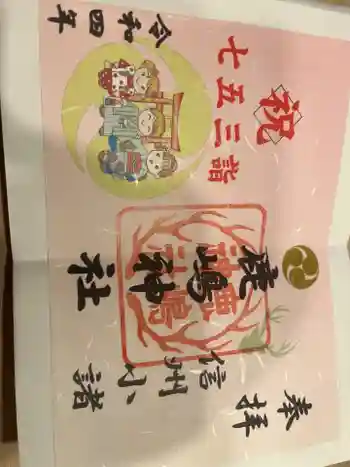 奉拝
信州小諸
鹿嶋神社
鹿嶋
神社
祝
七五三詣
令和四年